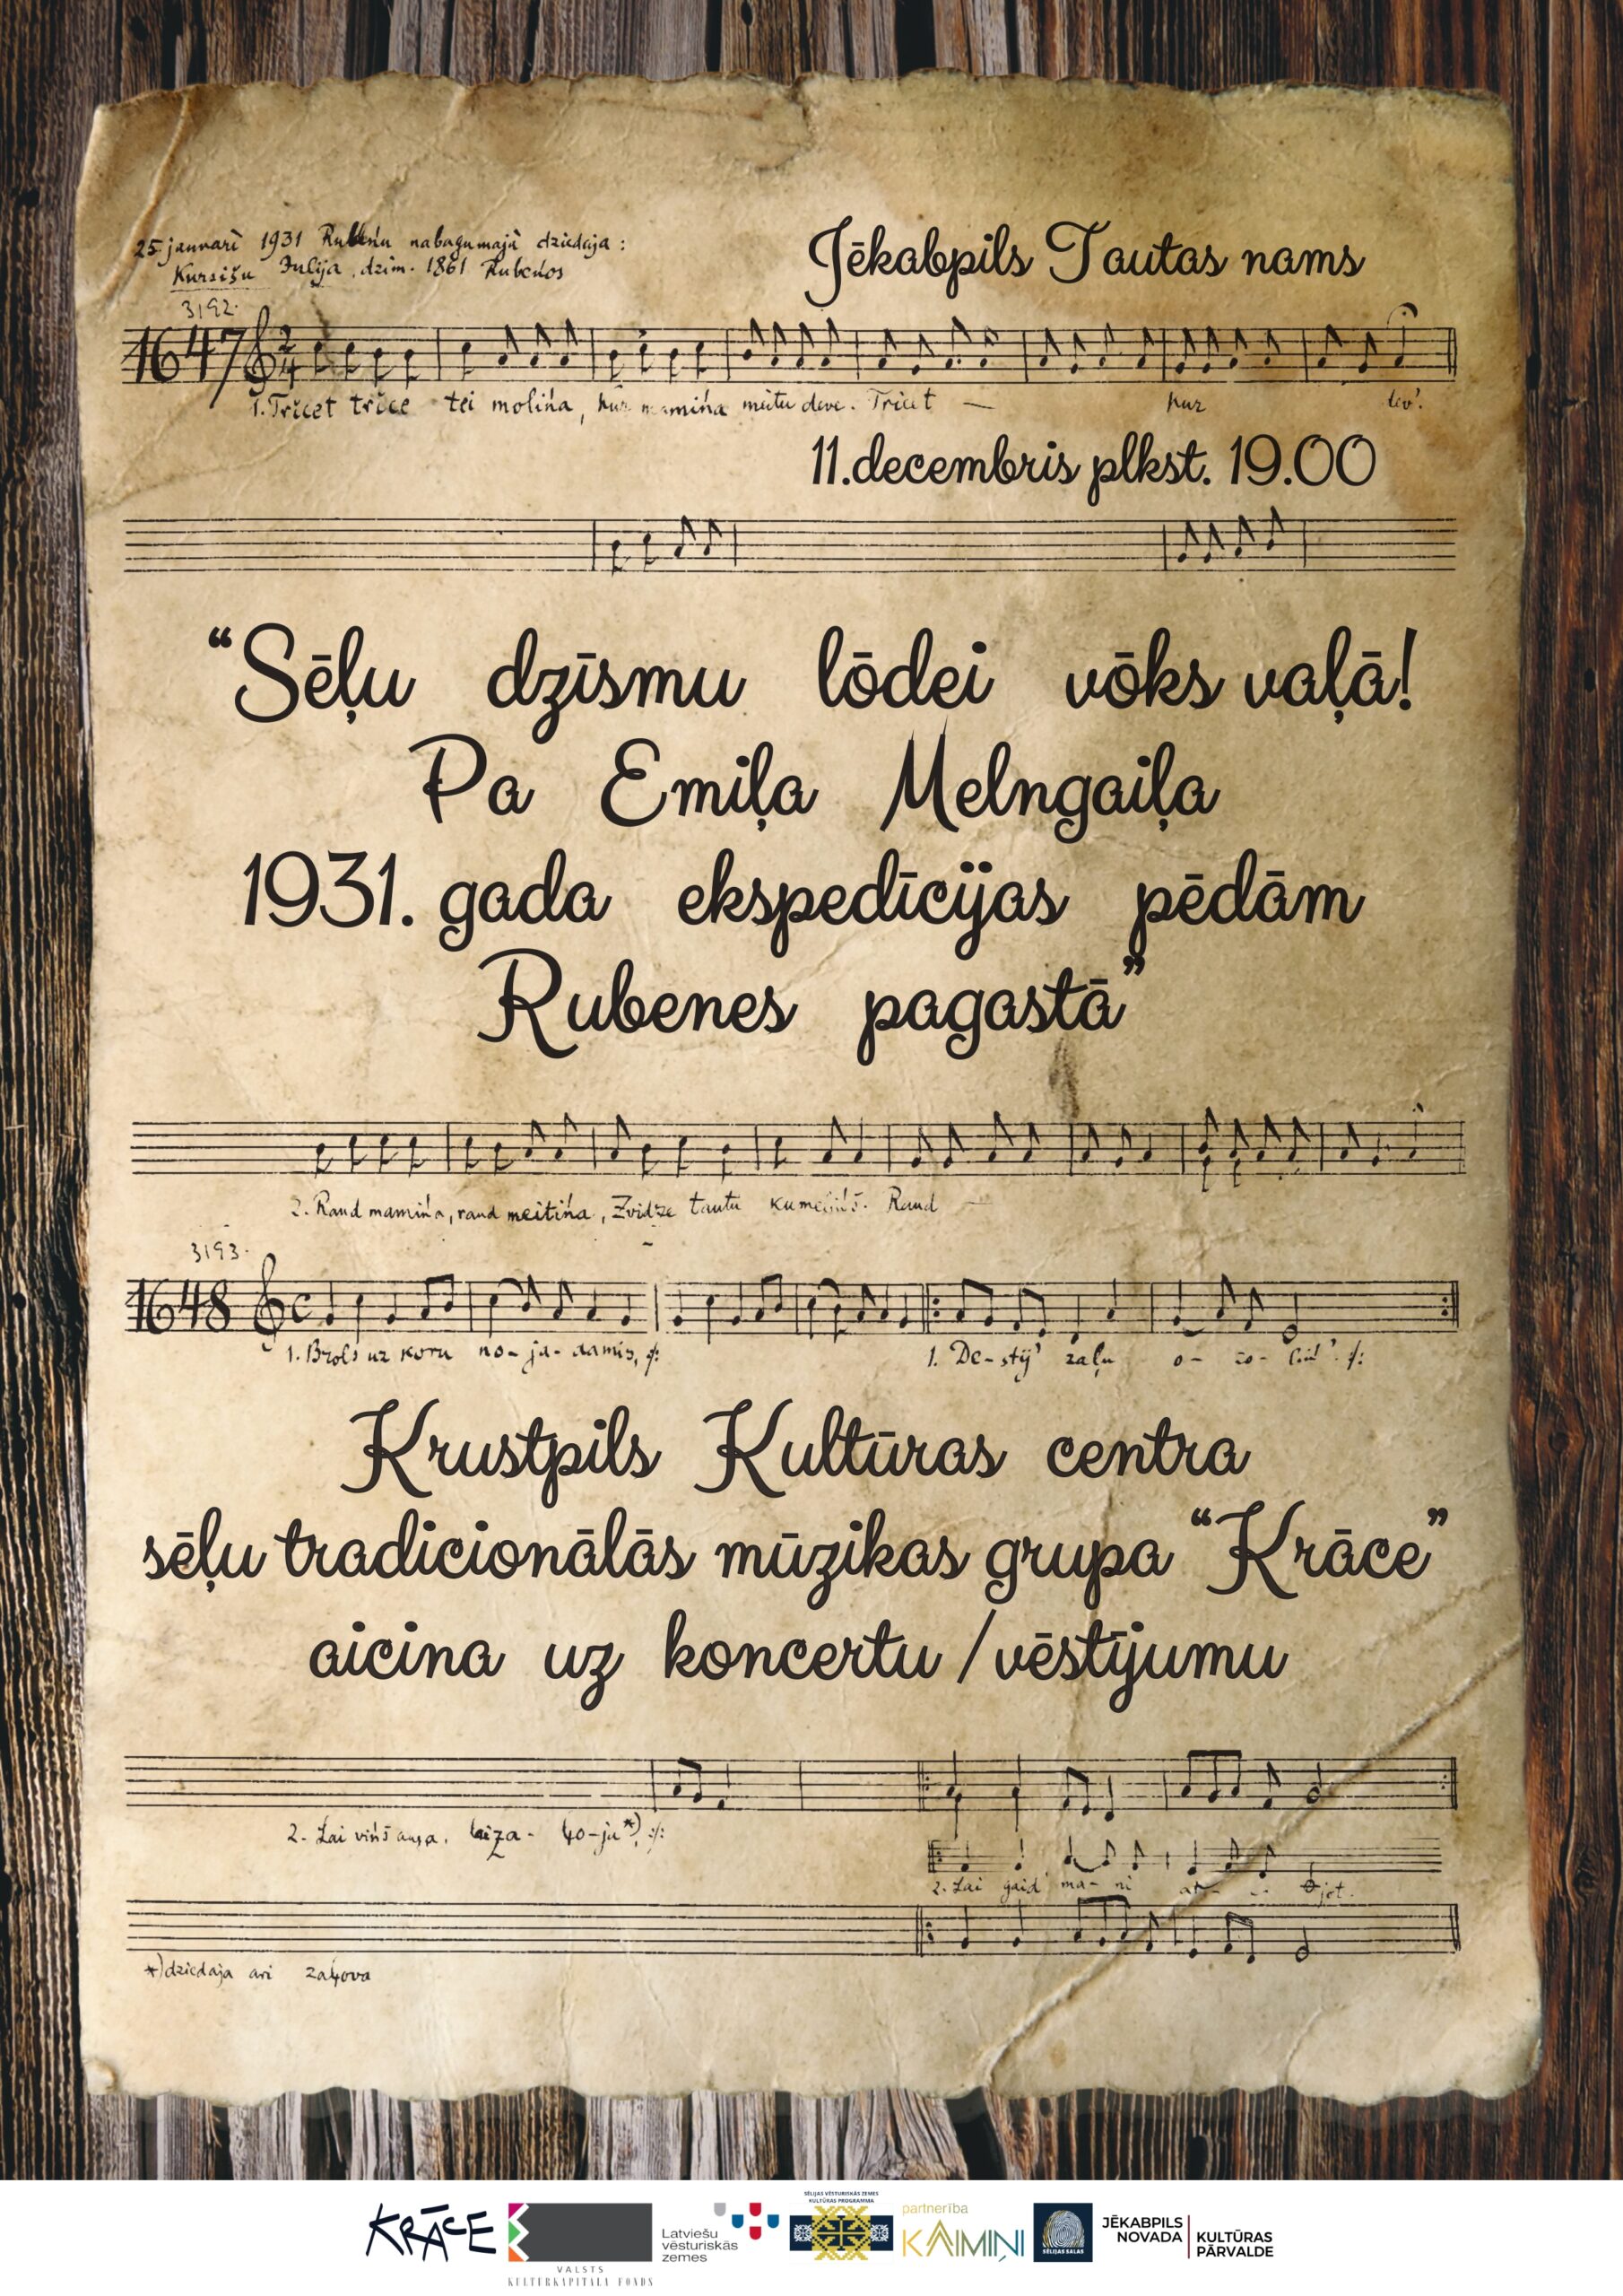 25 janvarī 1931 Rubeņu nabagumajā dziedaja :
Kursišu Julija, dzim. 1861 Rubeņos
Jēkabpils Tautas nams
3192.
1647
1. Tricet trice tei moliņa, kur mamiņa meitu deve. Tricet — kur dev'.
11.decembris plkst. 19.00
“Sēļu dzīsmu lōdei vōks vaļā!
Pa Emiļa Melngaiļa
1931. gada ekspedīcijas pēdām
Rubenes pagastā”
2. Raud mamiņa, raud meitiņa, Zvidze tautu kumeliņš. Raud —
3193.
1648
1. Brols uz koru no-ja-damis, :/: 1. De-stij' zaļu o-zo-
Krustpils Kultūras centra
sēļu tradicionālās mūzikas grupa “Krāce”
aicina uz koncertu /vēstījumu
2. Lai viņš auga,
2. Lai gaid' ma-ni
*) dziedaja ari
KRĀCE
VALSTS
KULTŪRKAPITĀLA FONDS
Latviešu
vēsturiskās
zemes
SĒLIJAS VĒSTURISKĀS ZEMES
KULTŪRAS PROGRAMMA
partnerība
KAIMIŅI
SĒLIJAS SALAS
JĒKABPILS
NOVADA
KULTŪRAS
PĀRVALDE